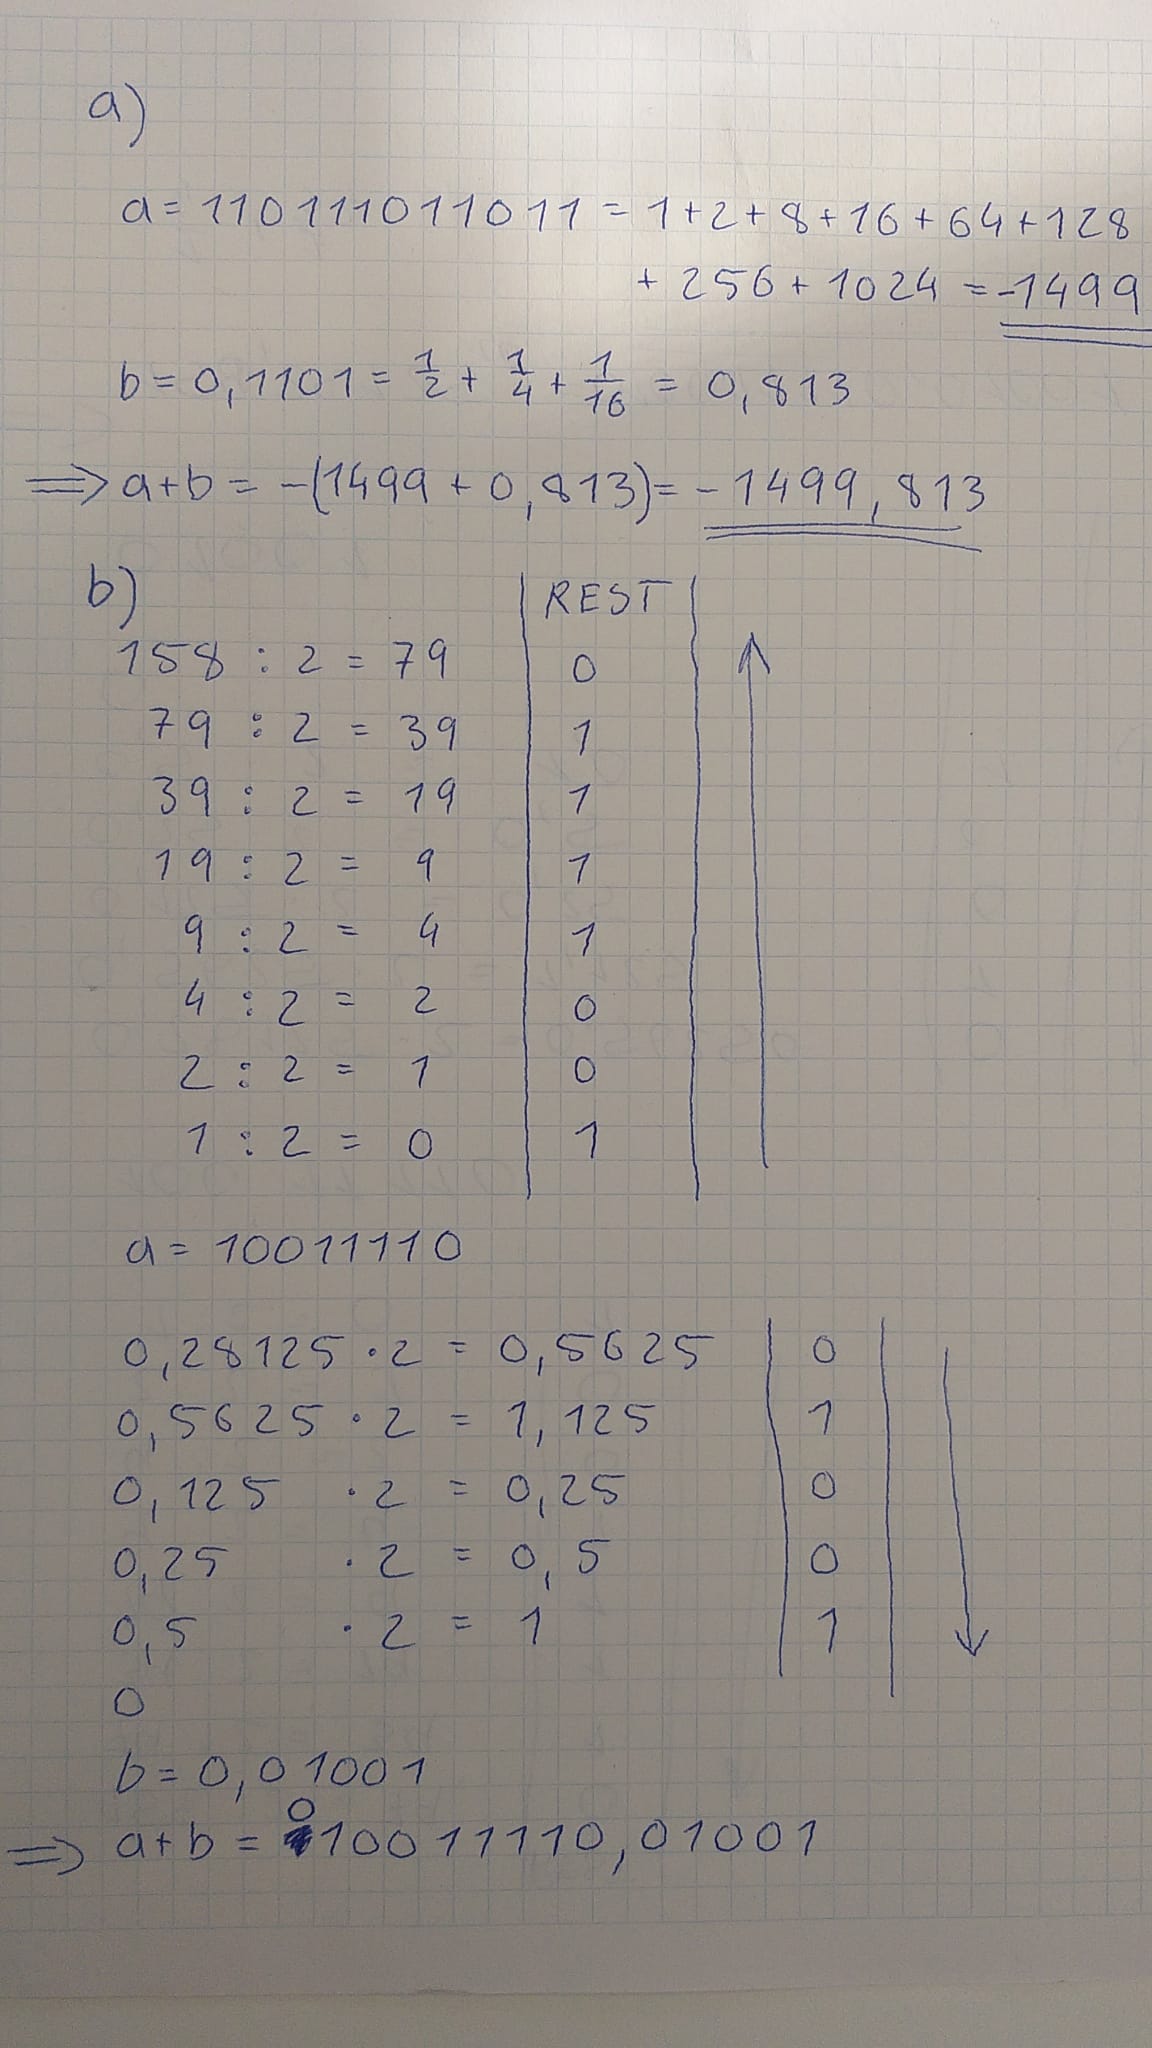 a)
a = 110111011011 = 1+2+8+16+64+128
+ 256 + 1024 = -1499
b = 0,1101 = 1/2 + 1/4 + 1/16 = 0,813
⇒ a+b = -(1499 + 0,813) = -1499,813
b)
REST
158 : 2 = 79 | 0
79 : 2 = 39 | 1
39 : 2 = 19 | 1
19 : 2 = 9 | 1
9 : 2 = 4 | 1
4 : 2 = 2 | 0
2 : 2 = 1 | 0
1 : 2 = 0 | 1
a = 10011110
0,28125 · 2 = 0,5625 | 0
0,5625 · 2 = 1,125 | 1
0,125 · 2 = 0,25 | 0
0,25 · 2 = 0,5 | 0
0,5 · 2 = 1 | 1
0
b = 0,01001
⇒ a+b = 010011110,01001